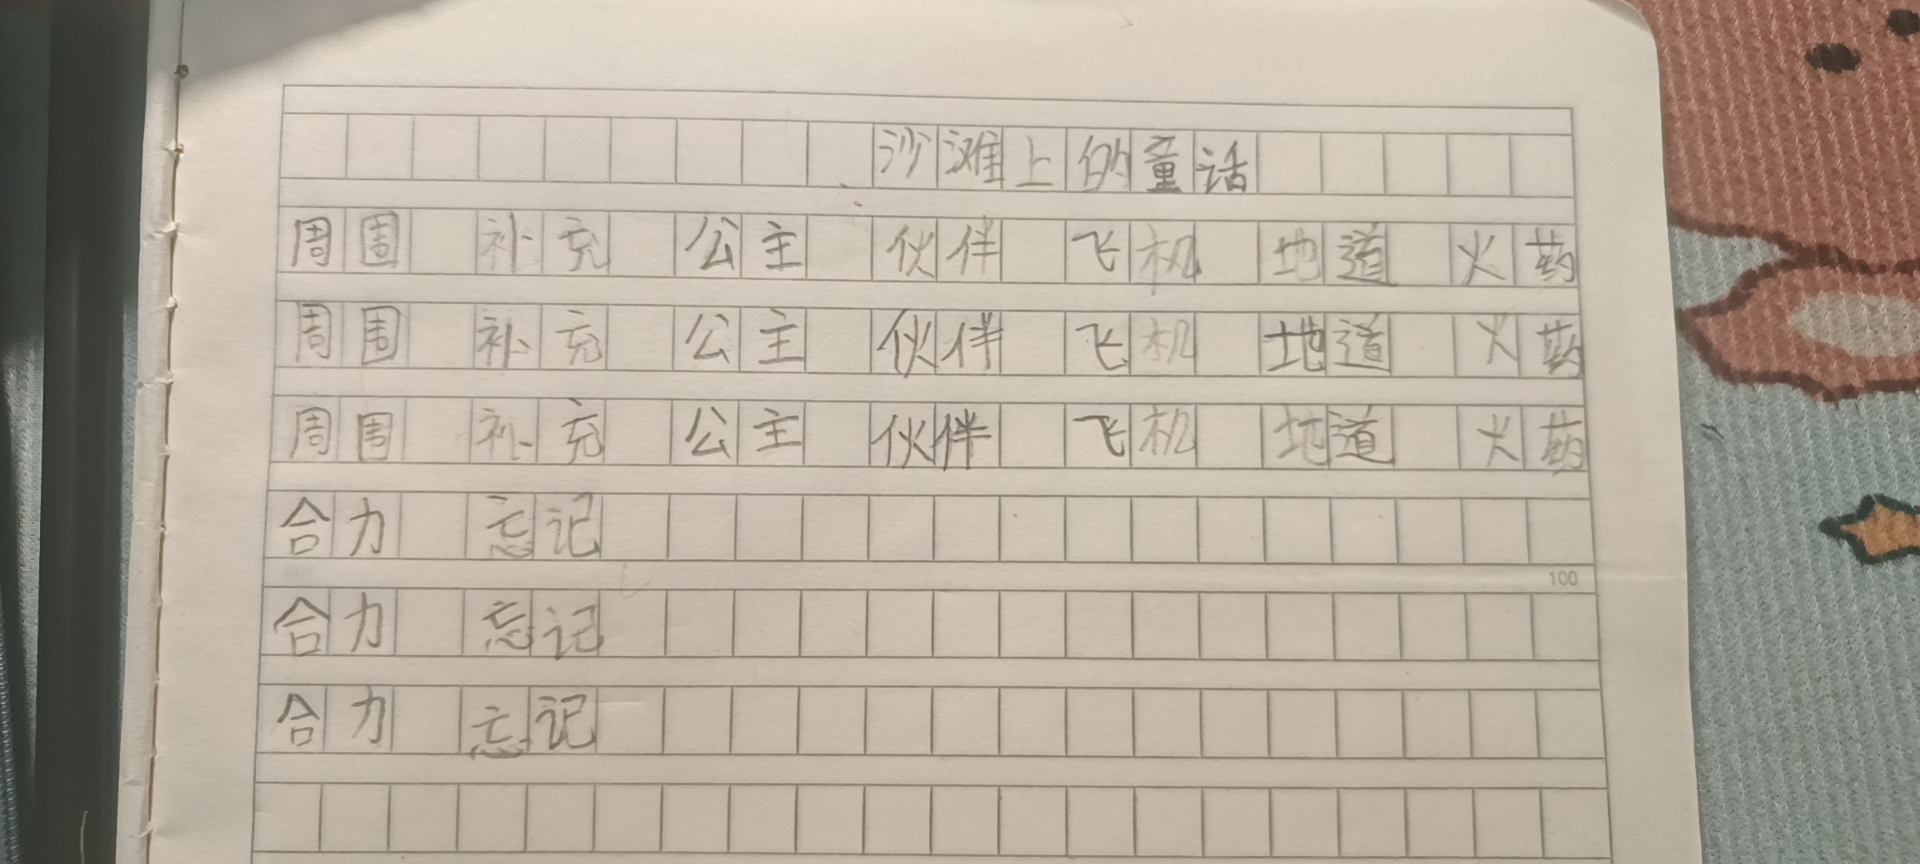 沙滩上的童话
周围 补充 公主 伙伴 飞机 地道 火药
周围 补充 公主 伙伴 飞机 地道 火药
周围 补充 公主 伙伴 飞机 地道 火药
合力 忘记
100
合力 忘记
合力 忘记